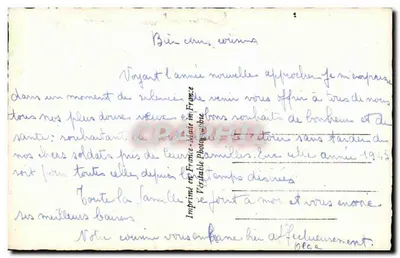 Bien chers cousins
Voyant l'année nouvelle approcher je m'empresse
dans un moment de silence de venir vous offrir à tous de nous
tous nos plus doux vœux bons souhaits de bonheur et de
santé; souhaitant sans tarder de
nos soldats près de leurs familles. Que cette année 1943
soit pour toutes celle depuis longtemps désirée
Toute la famille se joint à moi et vous envoie
ses meilleurs baisers
Votre cousin vous embrasse bien affectueusement.
Imprimé en France - Made in France
Véritable Photographie